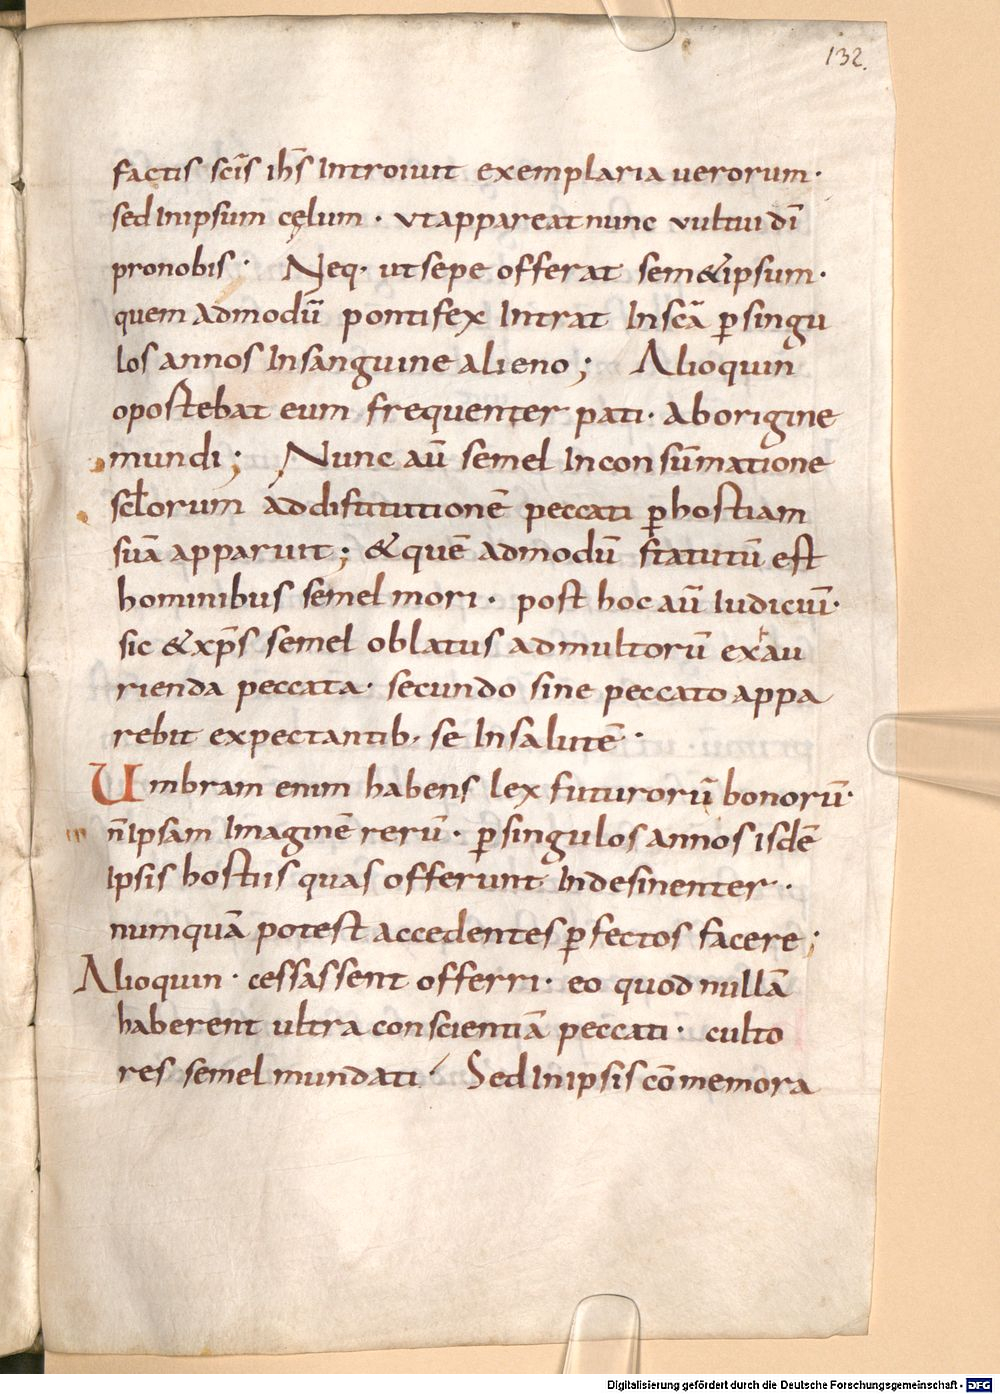 132.
factis scīs ihs̄ Introiuit exemplaria uerorum·
sed Inipsum cęlum · ut appareat nunc vultui dī
pronobis · Neq· ut sepe offerat sem&ipsum·
quem admodū pontifex Intrat Inscā ꝑsingu
los annos Insanguine alieno; Alioquin
oportebat eum frequenter pati· ab origine
mundi; Nunc aū semel Inconsūmatione
sclorum addistitutionē peccati ꝑ hostiam
suā apparuit; & quē admodū statutū est
hominibus semel mori · post hoc aū Iudiciū·
sic & xp̄s semel oblatus admultorū exhau
rienda peccata· secundo sine peccato appa
rebit expectantib· se Insalutē ·
Umbram enim habens lex futurorū bonorū·
n̄ Ipsam Imaginē rerū · ꝑ singulos annos isdē
Ipsis hostiis quas offerunt Indesinenter ·
numquā potest accedentes ꝑfectos facere;
Alioquin · cessassent offerri · eo quod nullā
haberent ultra conscientiā peccati · culto
res semel mundati · Sed Inipsis cōmemora
Digitalisierung gefördert durch die Deutsche Forschungsgemeinschaft - DFG